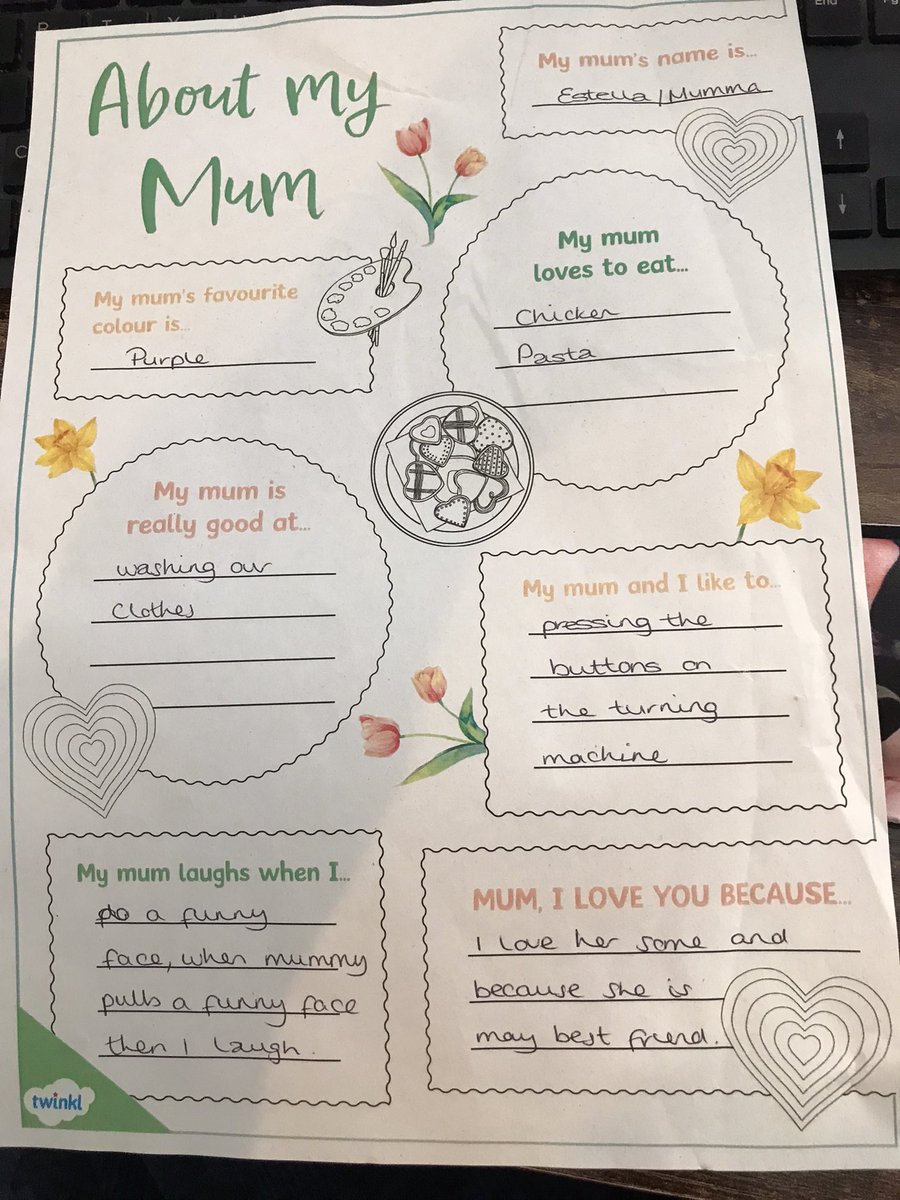 About my
Mum
My mum's name is...
Estella/Mumma
My mum's favourite
colour is...
Purple
My mum
loves to eat...
Chicken
Pasta
My mum is
really good at...
washing our
clothes
My mum and I like to...
pressing the
buttons on
the turning
machine
My mum laughs when I...
do a funny
face, when mummy
pulls a funny face
then I laugh.
MUM, I LOVE YOU BECAUSE...
I love her some and
because she is
may best friend.
twinkl
End